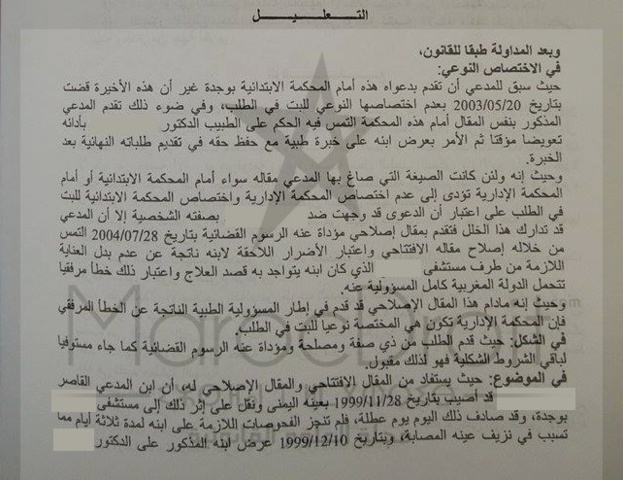 التـــعـــلـــيـــل
وبعد المداولة طبقا للقانون،
في الاختصاص النوعي:
حيث سبق للمدعي أن تقدم بدعواه هذه أمام المحكمة الابتدائية بوجدة غير أن هذه الأخيرة قضت
بتاريخ 2003/05/20 بعدم اختصاصها النوعي للبت في الطلب، وفي ضوء ذلك تقدم المدعي
المذكور بنفس المقال أمام هذه المحكمة التمس فيه الحكم على الطبيب الدكتور بأدائه
تعويضا مؤقتا ثم الأمر بعرض ابنه على خبرة طبية مع حفظ حقه في تقديم طلباته النهائية بعد
الخبرة.
وحيث إنه ولئن كانت الصيغة التي صاغ بها المدعي مقاله سواء أمام المحكمة الابتدائية أو أمام
المحكمة الإدارية تؤدى إلى عدم اختصاص المحكمة الإدارية واختصاص المحكمة الابتدائية للبت
في الطلب على اعتبار أن الدعوى قد وجهت ضد بصفته الشخصية إلا أن المدعي
قد تدارك هذا الخلل فتقدم بمقال إصلاحي مؤداة عنه الرسوم القضائية بتاريخ 2004/07/28 التمس
من خلاله إصلاح مقاله الافتتاحي واعتبار الأضرار اللاحقة لابنه ناتجة عن عدم بدل العناية
اللازمة من طرف مستشفى الذي كان ابنه يتواجد به قصد العلاج واعتبار ذلك خطأ مرفقيا
تتحمل الدولة المغربية كامل المسؤولية عنه.
وحيث إنه مادام هذا المقال الإصلاحي قد قدم في إطار المسؤولية الطبية الناتجة عن الخطأ المرفقي
فإن المحكمة الإدارية تكون هي المختصة نوعيا للبت في الطلب.
في الشكل: حيث قدم الطلب من ذي صفة ومصلحة ومؤداة عنه الرسوم القضائية كما جاء مستوفيا
لباقي الشروط الشكلية فهو لذلك مقبول.
في الموضوع: حيث يستفاد من المقال الإفتتاحي والمقال الإصلاحي له، أن ابن المدعي القاصر
قد أصيب بتاريخ 1999/11/28 بعينه اليمنى ونقل على إثر ذلك إلى مستشفى
بوجدة، وقد صادف ذلك اليوم يوم عطلة، فلم تنجز الفحوصات اللازمة على ابنه لمدة ثلاثة أيام مما
تسبب في نزيف عينه المصابة، وبتاريخ 1999/12/10 عرض ابنه المذكور على الدكتور